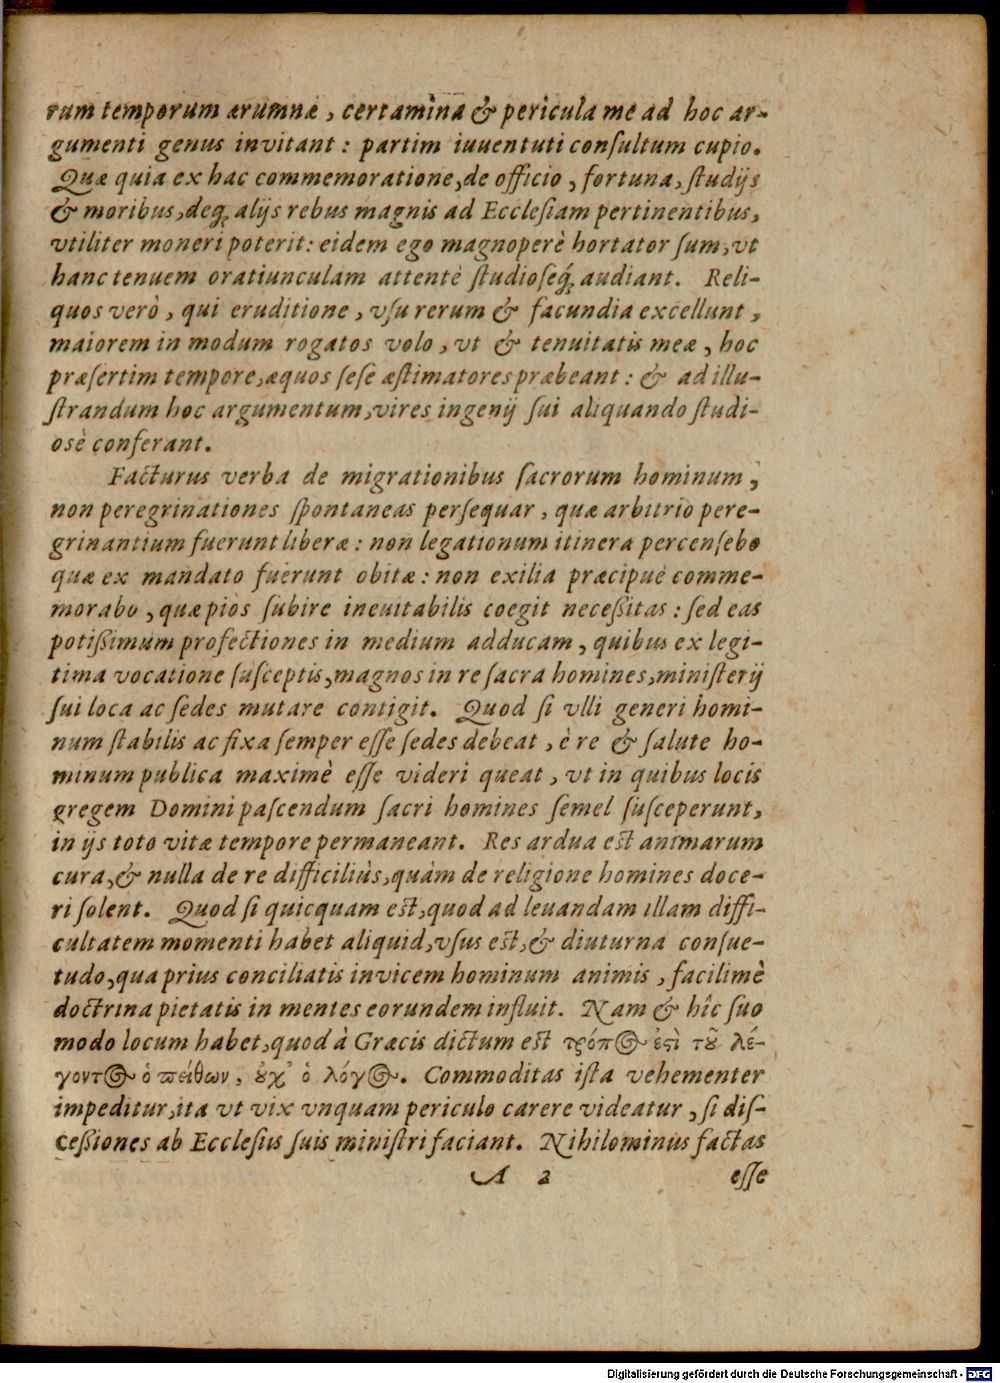 rum temporum ærumnæ, certamina & pericula me ad hoc ar-
gumenti genus invitant: partim iuuentuti conſultum cupio.
Quæ quia ex hac commemoratione, de officio, fortuna, ſtudijs
& moribus, deq́; alijs rebus magnis ad Eccleſiam pertinentibus,
vtiliter moneri poterit: eidem ego magnoperè hortator ſum, vt
hanc tenuem oratiunculam attentè ſtudioſeq́; audiant. Reli-
quos verò, qui eruditione, vſu rerum & facundia excellunt,
maiorem in modum rogatos volo, vt & tenuitatis meæ, hoc
præſertim tempore, æquos ſeſe æſtimatores præbeant: & ad illu-
ſtrandum hoc argumentum, vires ingenij ſui aliquando ſtudi-
osè conferant.
Facturus verba de migrationibus ſacrorum hominum,
non peregrinationes ſpontaneas perſequar, quæ arbitrio pere-
grinantium fuerunt liberæ: non legationum itinera percenſebo
quæ ex mandato fuerunt obitæ: non exilia præcipuè comme-
morabo, quæ pios ſubire ineuitabilis coegit neceßitas: ſed eas
potißimum profectiones in medium adducam, quibus ex legi-
tima vocatione ſuſceptis, magnos in re ſacra homines, miniſterij
ſui loca ac ſedes mutare contigit. Quod ſi vlli generi homi-
num ſtabilis ac fixa ſemper eſſe ſedes debeat, è re & ſalute ho-
minum publica maximè eſſe videri queat, vt in quibus locis
gregem Domini paſcendum ſacri homines ſemel ſuſceperunt,
in ijs toto vitæ tempore permaneant. Res ardua est animarum
cura, & nulla de re difficiliùs, quàm de religione homines doce-
ri ſolent. Quod ſi quicquam est, quod ad leuandam illam diffi-
cultatem momenti habet aliquid, vſus est, & diuturna conſue-
tudo, qua prius conciliatis invicem hominum animis, facilimè
doctrina pietatis in mentes eorundem influit. Nam & hîc ſuo
modo locum habet, quod à Græcis dictum est τρόπος ἐϛὶ τοῦ λέ-
γοντος ὁ πείθων, οὐχ ὁ λόγος. Commoditas iſta vehementer
impeditur, ita vt vix vnquam periculo carere videatur, ſi diſ-
ceßiones ab Eccleſiis ſuis miniſtri faciant. Nihilominus factas
A 2 eſſe
Digitalisierung gefördert durch die Deutsche Forschungsgemeinschaft - DFG